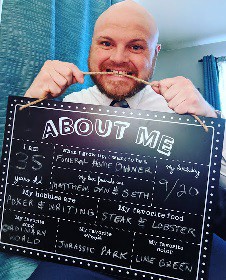 ABOUT ME
I am
35
years old
When I grow up, I want to be a
FUNERAL HOME OWNER!
My best friends are
MATTHEW, DYN & SETH
My birthday
9/20
My hobbies are
POKER & WRITING
My favorite food
STEAK & LOBSTER
My favorite
ORDINARY
WORLD
My favorite movie
JURASSIC PARK
My favorite color
LIME GREEN